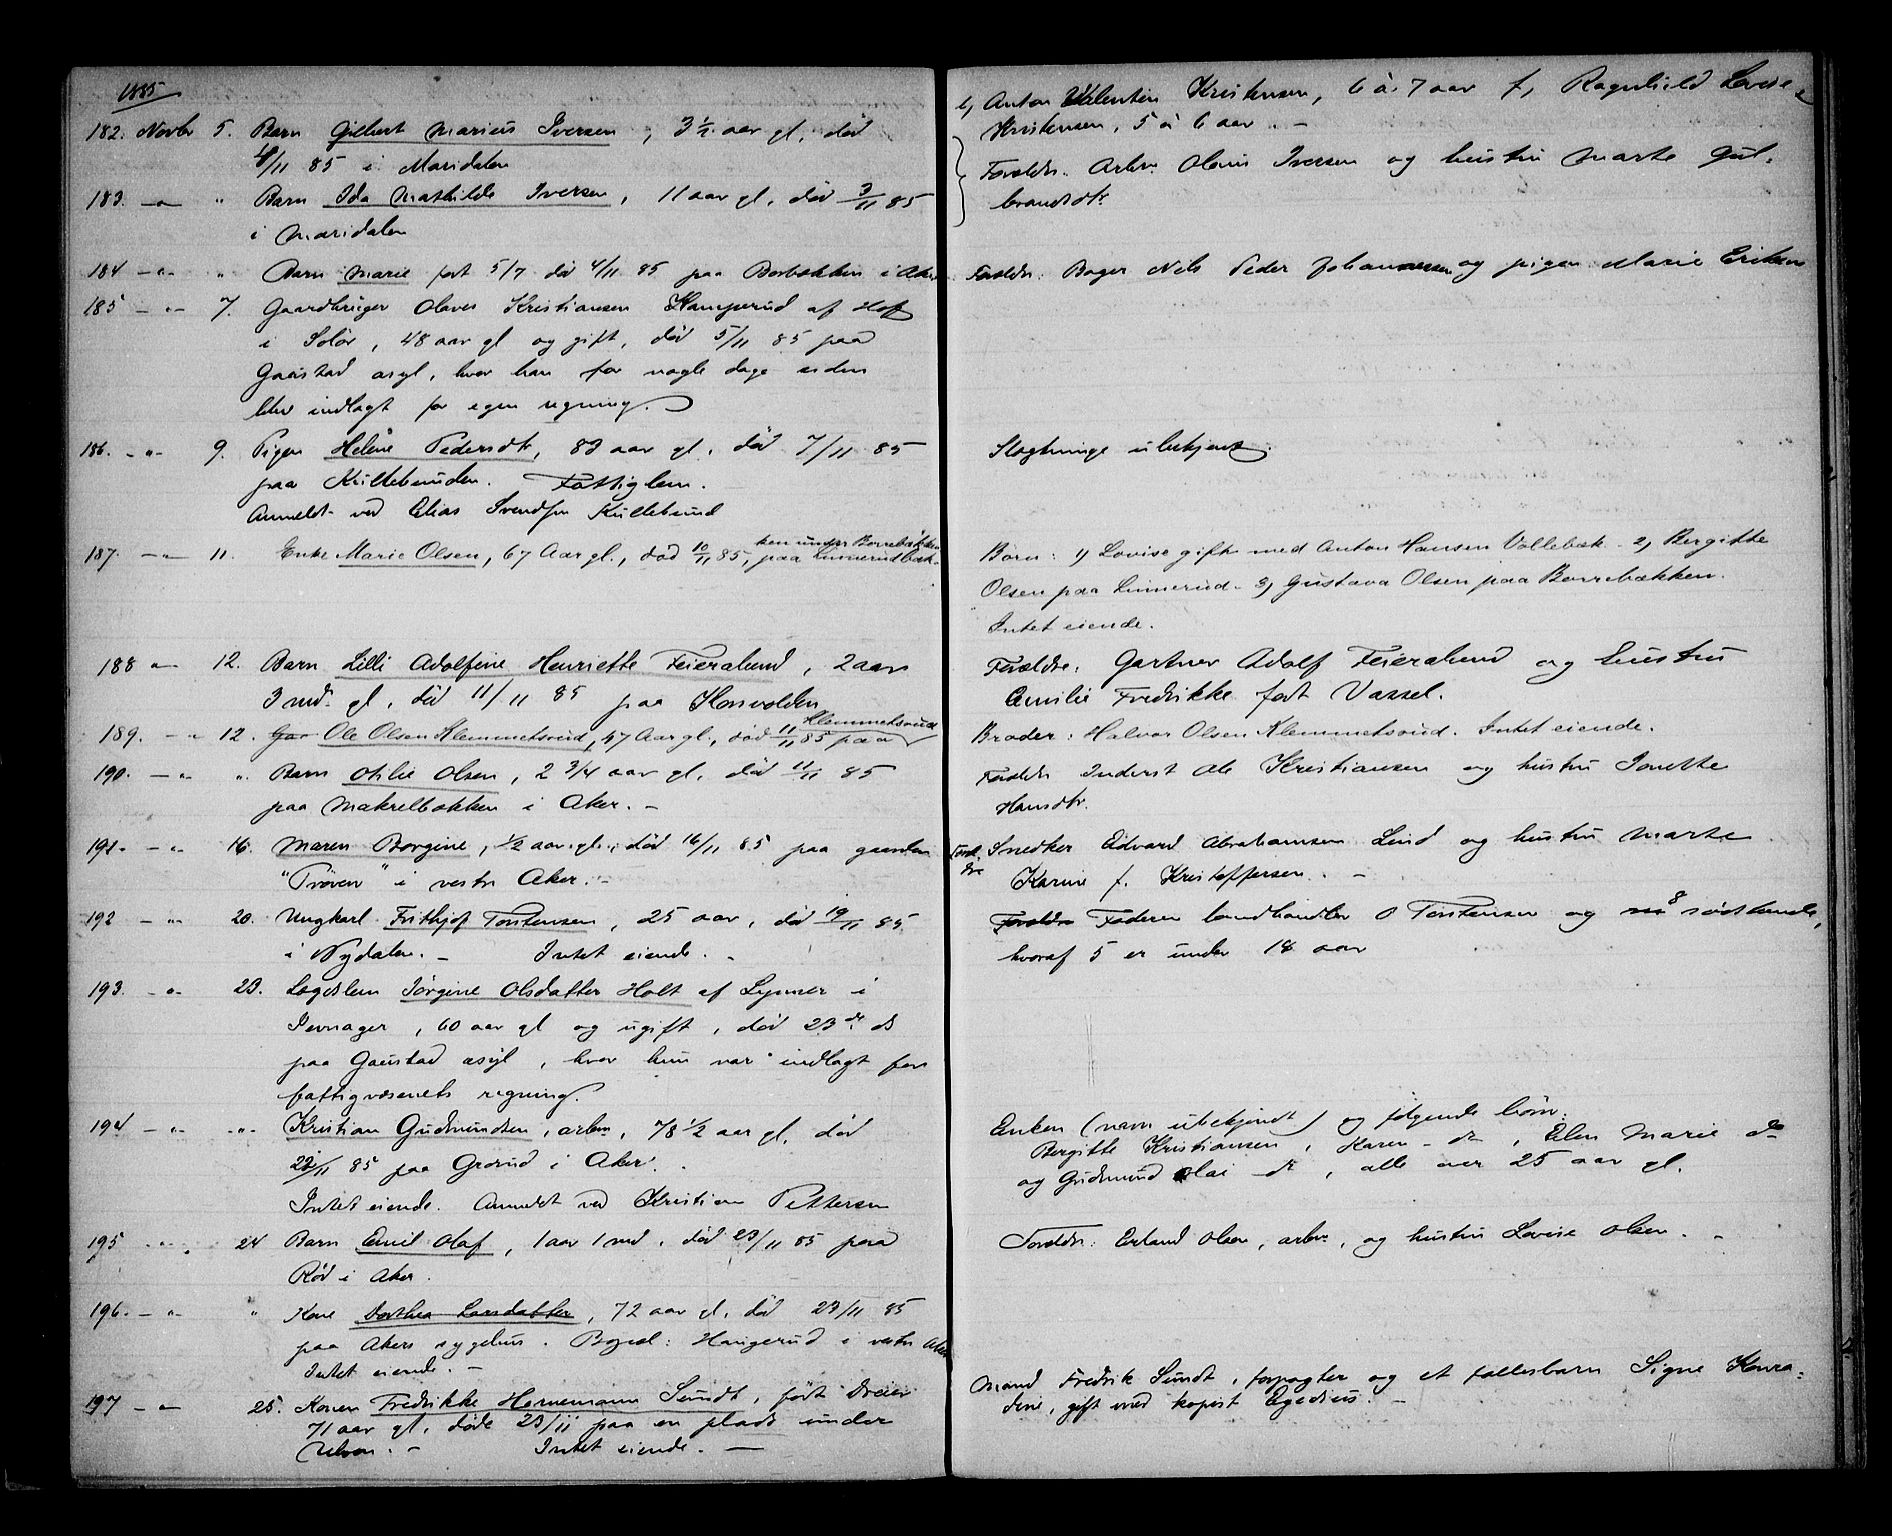 1885
182. Novbr 5. Barn Gilbert Marius Iversen, 3 1/2 aar gl, død
4/11 85 i Maridalen
183. -"- " Barn Ida Mathilde Iversen, 11 aar gl, død 3/11 85
i Maridalen
184 -"- " Barn Marie født 5/7 død 4/11 85 paa Borbækken i Aker
185 -"- 7. Gaardbruger Olaves Kristiansen Kamperud af Hof
i Solør, 48 aar gl og gift, død 5/11 85 paa
Gaustad asyl, hvor han for nogle dage siden
blev indlagt for egen regning.
186. -"- 9. Pigen Helene Pedersdtr, 83 aar gl. død 7/11 85
paa Killebunden. Fattiglem.
Anmeldt ved Elias Svendsen Killebund
187. -"- 11. Enke Marie Olsen, 67 Aar gl., død 10/11 85, paa Linnerudbæk-
ken under Borrebækken
188 -"- 12. Barn Lilli Adolfine Henriette Feierabend, 2 aar
3 md. gl, død 11/11 85 paa Korsvolden
189. -"- 12. Gaa Ole Olsen Klemmetsrud, 47 Aar gl., død 11/11 85 paa
Klemmetsrud
190. -"- ". Barn Otilie Olsen, 2 3/4 aar gl, død 11/11 85
paa Makrelbækken i Aker. -
191. -"- 16. Maren Borgine, 1/2 aar gl, død 16/11 85 paa gaarden
"Prøven" i vestre Aker. -
192 -"- 20. Ungkarl Frithjof Torstensen, 25 aar, død 19/11 85
i Nydalen. - Intet eiende. -
193. -"- 23. Lægdslem Jørgine Olsdatter Holt af
Jevnager, 60 aar gl og ugift, død 23de ds
paa Gaustad asyl, hvor hun var indlagt for
fattigvæsenets regning.
194 -"- -"- Kristian Gudmundsen, arbm, 78 1/2 aar gl, død
22/11 85 paa Grorud i Aker.
Intet eiende. Anmeldt ved Kristian Pettersen
195 -"- 24 Barn Emil Olaf, 1 aar 1 md, død 23/11 85 paa
Rød i Aker.
196. -"- " Kone Dorthea Larsdatter, 72 aar gl, død 23/11 85
paa Akers sygehus. Bopæl: Haugerud i vestre Aker
Intet eiende. -
197 -"- 25. Konen Fredrikke Hornemann Sundt, født Dreier
71 aar gl, døde 23/11 paa en plads under
Ulven. - Intet eiende. -
e, Anton Valentin Kristensen, 6 à 7 aar f, Ragnhild Lovise
Kristensen, 5 à 6 aar -
Forældr. Arbm. Olaus Iversen og hustru Marte Gul-
brandsdtr.
Forældr: Bager Nils Peder Johannesen og pigen Marie Eriksen
Slægtninge ubekjent.
Børn: 1) Lovise gift med Anton Hansen Vollebæk 2, Bergitte
Olsen paa Linnerud. 3, Gustava Olsen paa Borrebækken.
Intet eiende.
Forældre: Gartner Adolf Feierabend og hustru
Emilie Fredrikke født Vassel.
Broder: Halvor Olsen Klemmetsrud. Intet eiende.
Forældr Inderst Ole Kristiansen og hustru Jonette
Hansdtr.
Forældre Snedker Edvard Abrahamsen Lind og hustru Marte
Karine f. Kristoffersen. -
Forældre Faderen landhandler O Torstensen og 8 sødskende,
hvoraf 5 er under 18 aar
Enken (navn ubekjendt) og følgende børn:
Bergitte Kristiansen, Karen - do, Elen Marie do
og Gudmund Olai do, alle over 25 aar gl.
Forældr: Erland Olsen, arbm, og hustru Lovise Olsen. -
Mand Fredrik Sundt, forpagter og et fællesbarn Signe Konra-
dine, gift med kopist Egedius. -